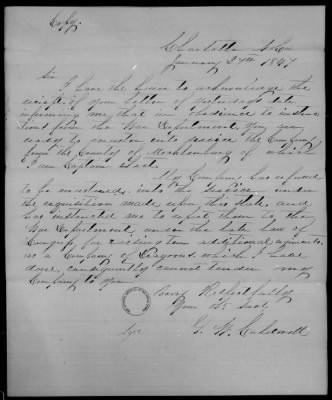 Copy.
Charlotte N. Ca
January 27th 1847
Sir
I have the honor to acknowledge the
receipt of your letter of yesterday's date
informing me that in obedience to instruc
tions from the War Department, you are
ready to muster into service the Company
from the County of Mecklenburg of which
I am Captain elect.
My Company has refused
to be mustered, into the service under
the requisition made upon this State, and
has instructed me to report them to the
War Department, under the late law of
Congress for raising ten additional regiments,
as a Company of Dragoons, which I have
done, consequently cannot tender my
Company to you.
Very Respectfully
Your Ob. Servt
G. W. Caldwell